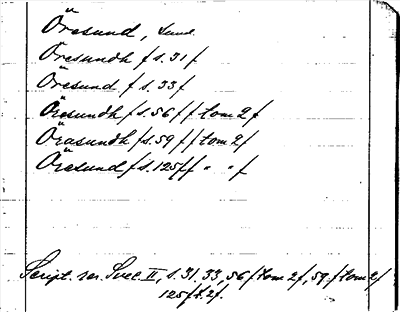 Öresund, Sund.
Öresundh f s. 31 f
Öresund f s. 33 f
Öræsundh f s. 56 f f tom 2 f
Örasundh f s. 59 f f tom 2 f
Öræsund f s. 125 f f " " f
Script. rer. Svec. II, s. 31. 33, 56 f tom 2 f, 59 f tom 2 f
125 f t. 2 f.